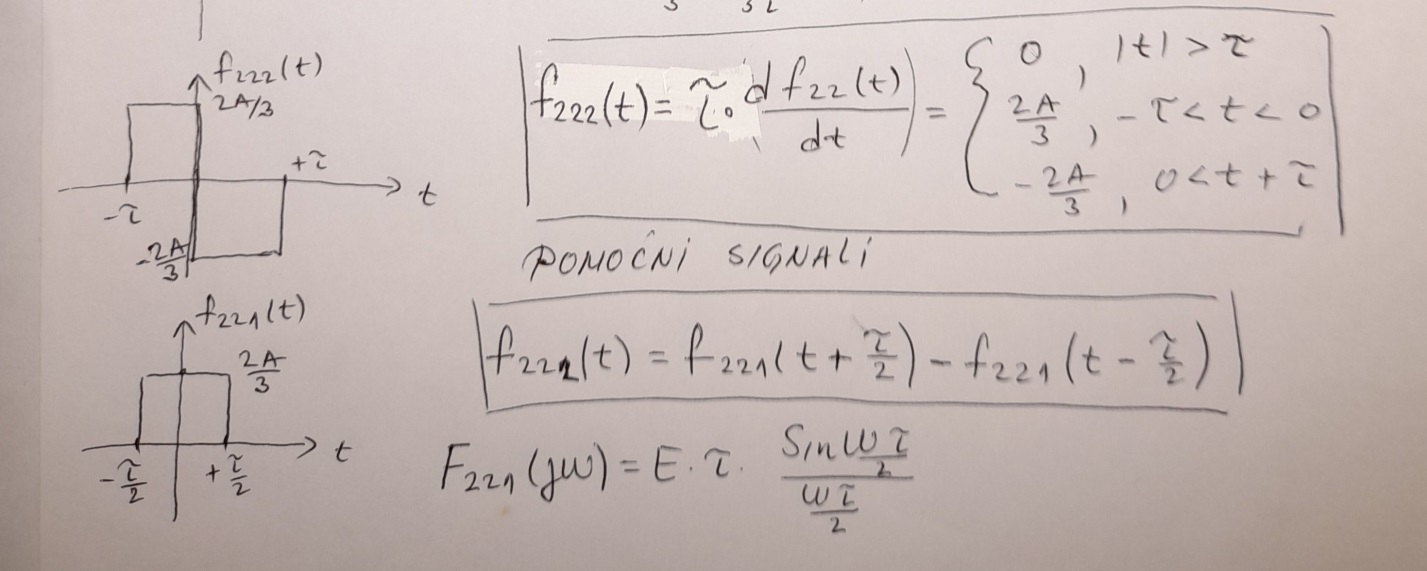 f₂₂₂(t)
2A/3
+τ
t
-τ
-2A/3
f₂₂₂(t) = τ · d f₂₂(t)/dt = { 0 , |t| > τ
2A/3 , -τ < t < 0
-2A/3 , 0 < t + τ
POMOĆNI SIGNALI
f₂₂₁(t)
2A/3
t
-τ/2
+τ/2
f₂₂₂(t) = f₂₂₁(t + τ/2) - f₂₂₁(t - τ/2)
F₂₂₁(jω) = E · τ · (Sin ωτ/2)/(ωτ/2)